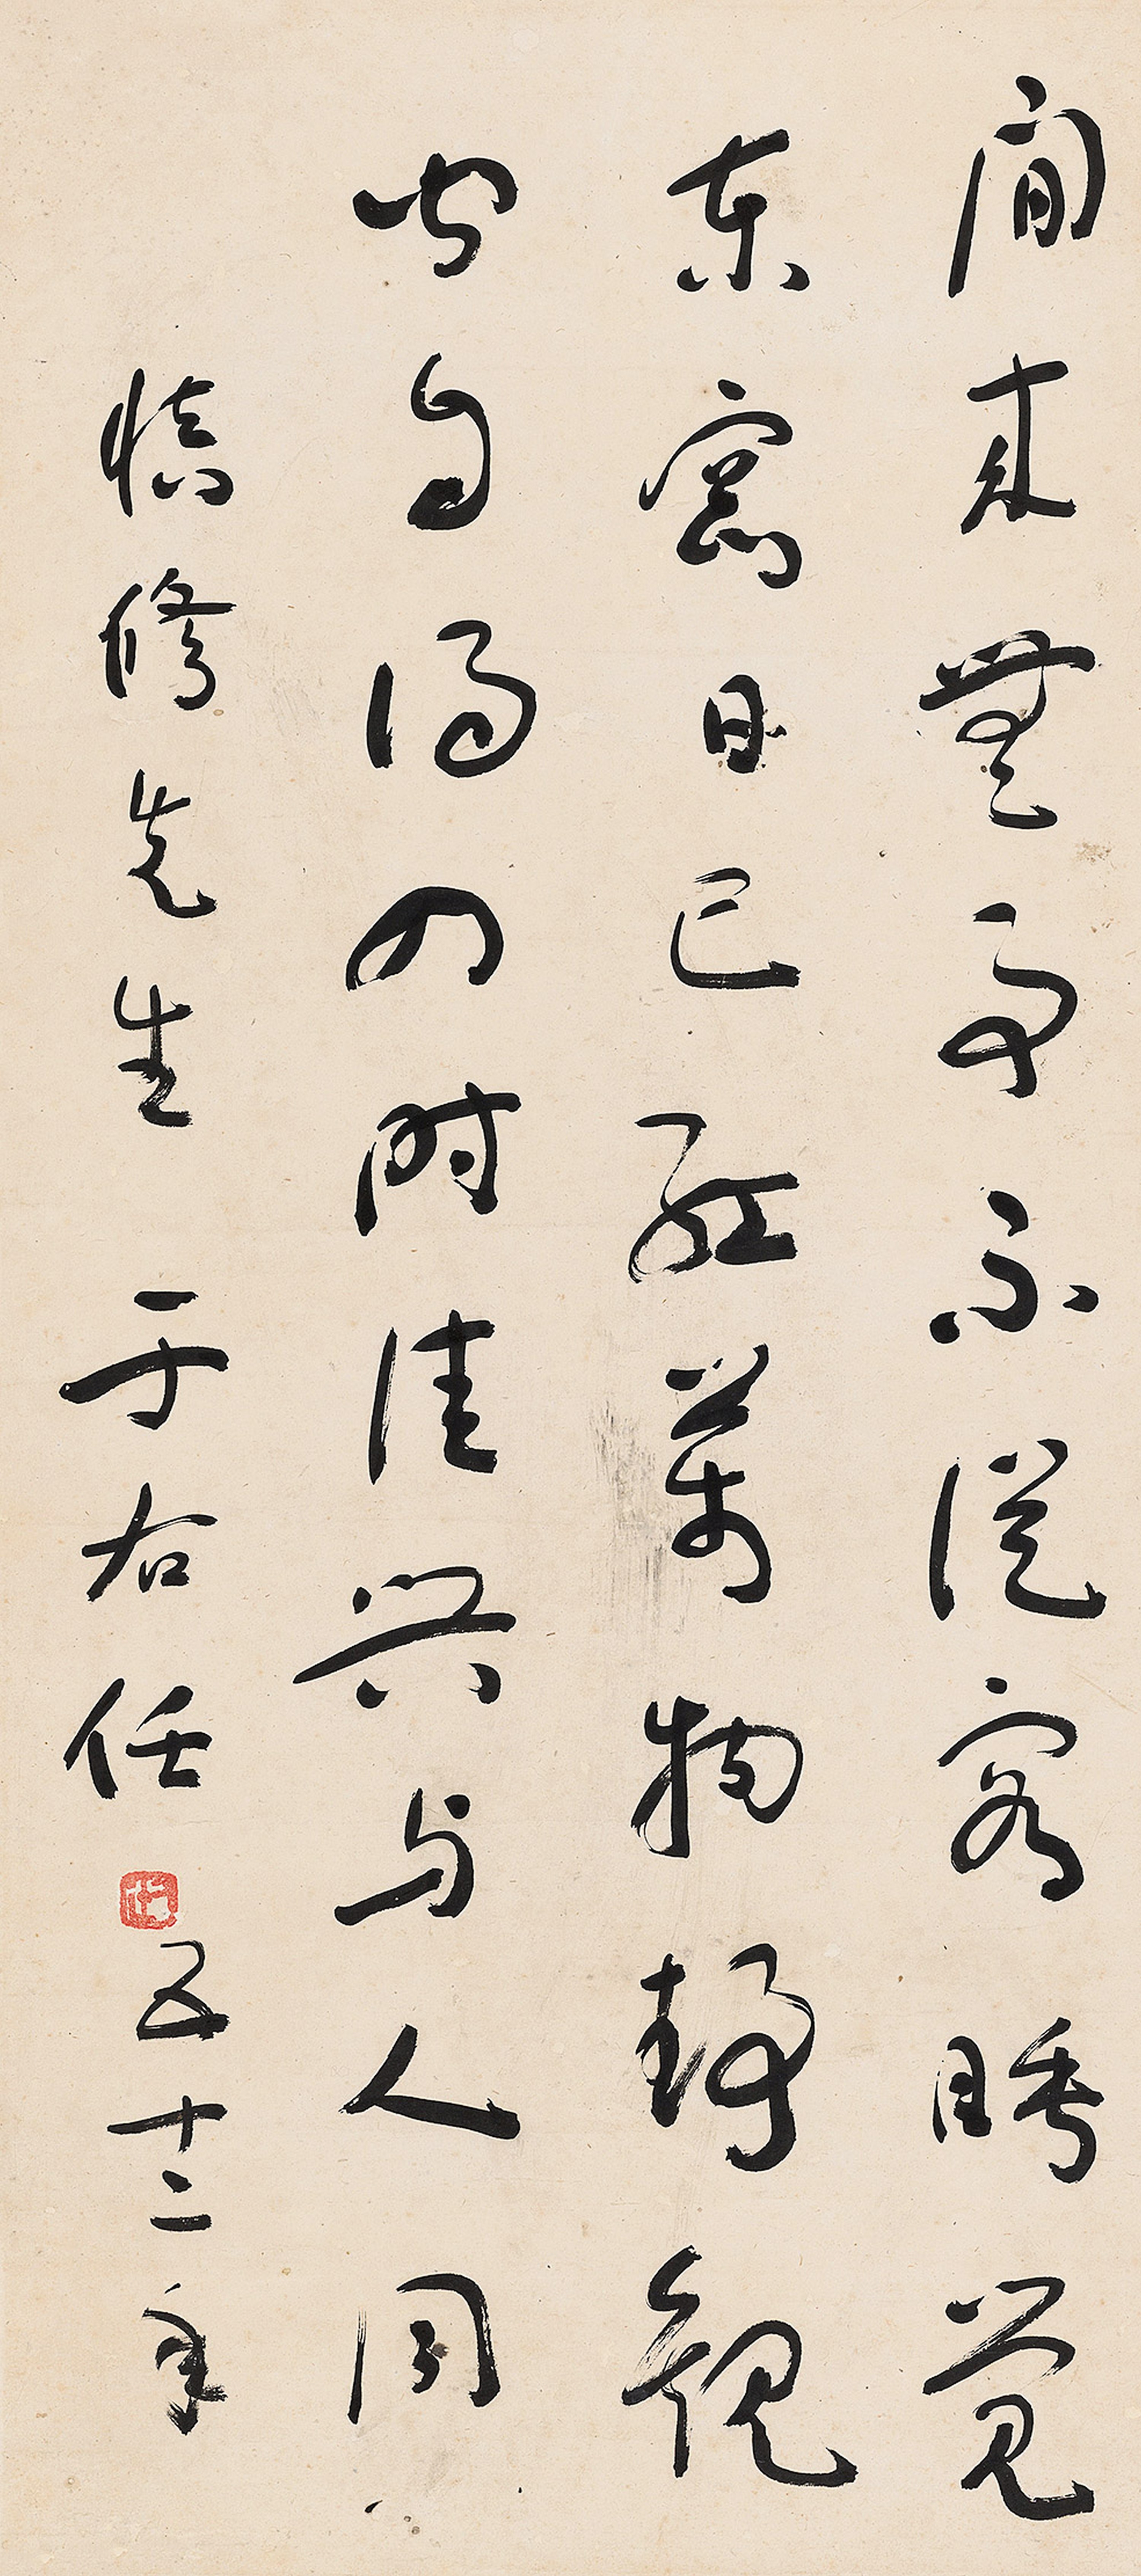 閒來無事不從容睡覺
東窗日已紅萬物靜觀
皆自得四時佳興與人同
慎修先生 于右任
五十二年